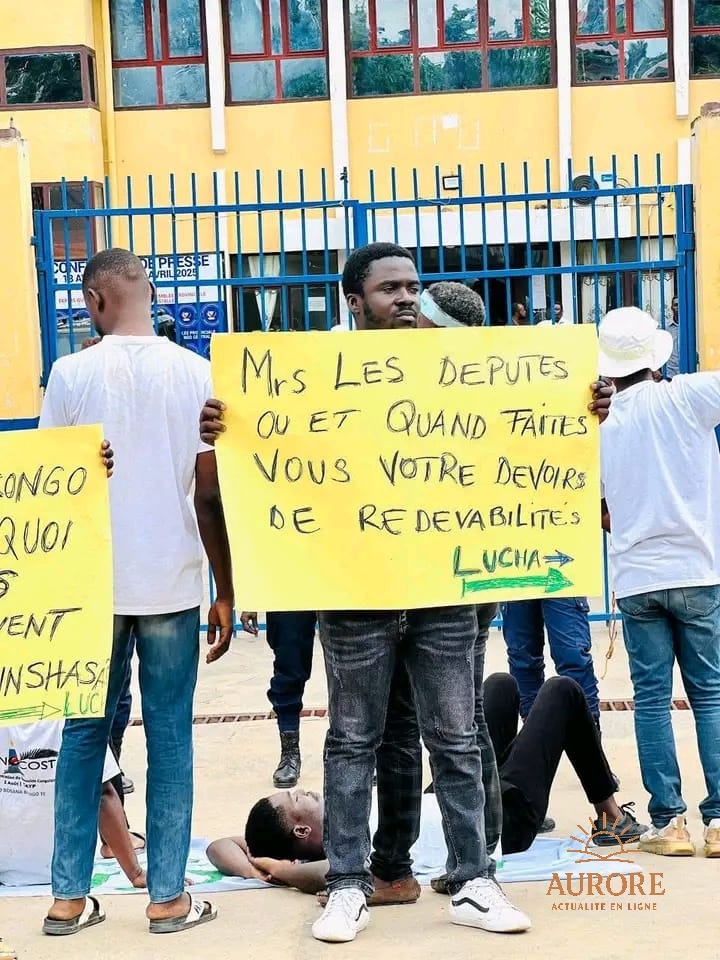 DE PRESSE
AVRIL 2025
Mrs LES DEPUTES
OU ET QUAND FAITES
VOUS VOTRE DEVOIRS
DE REDEVABILITÉS
LUCHA
ONGO
QUOI
VENT
INSHASA
LUC
AURORE
ACTUALITE EN LIGNE